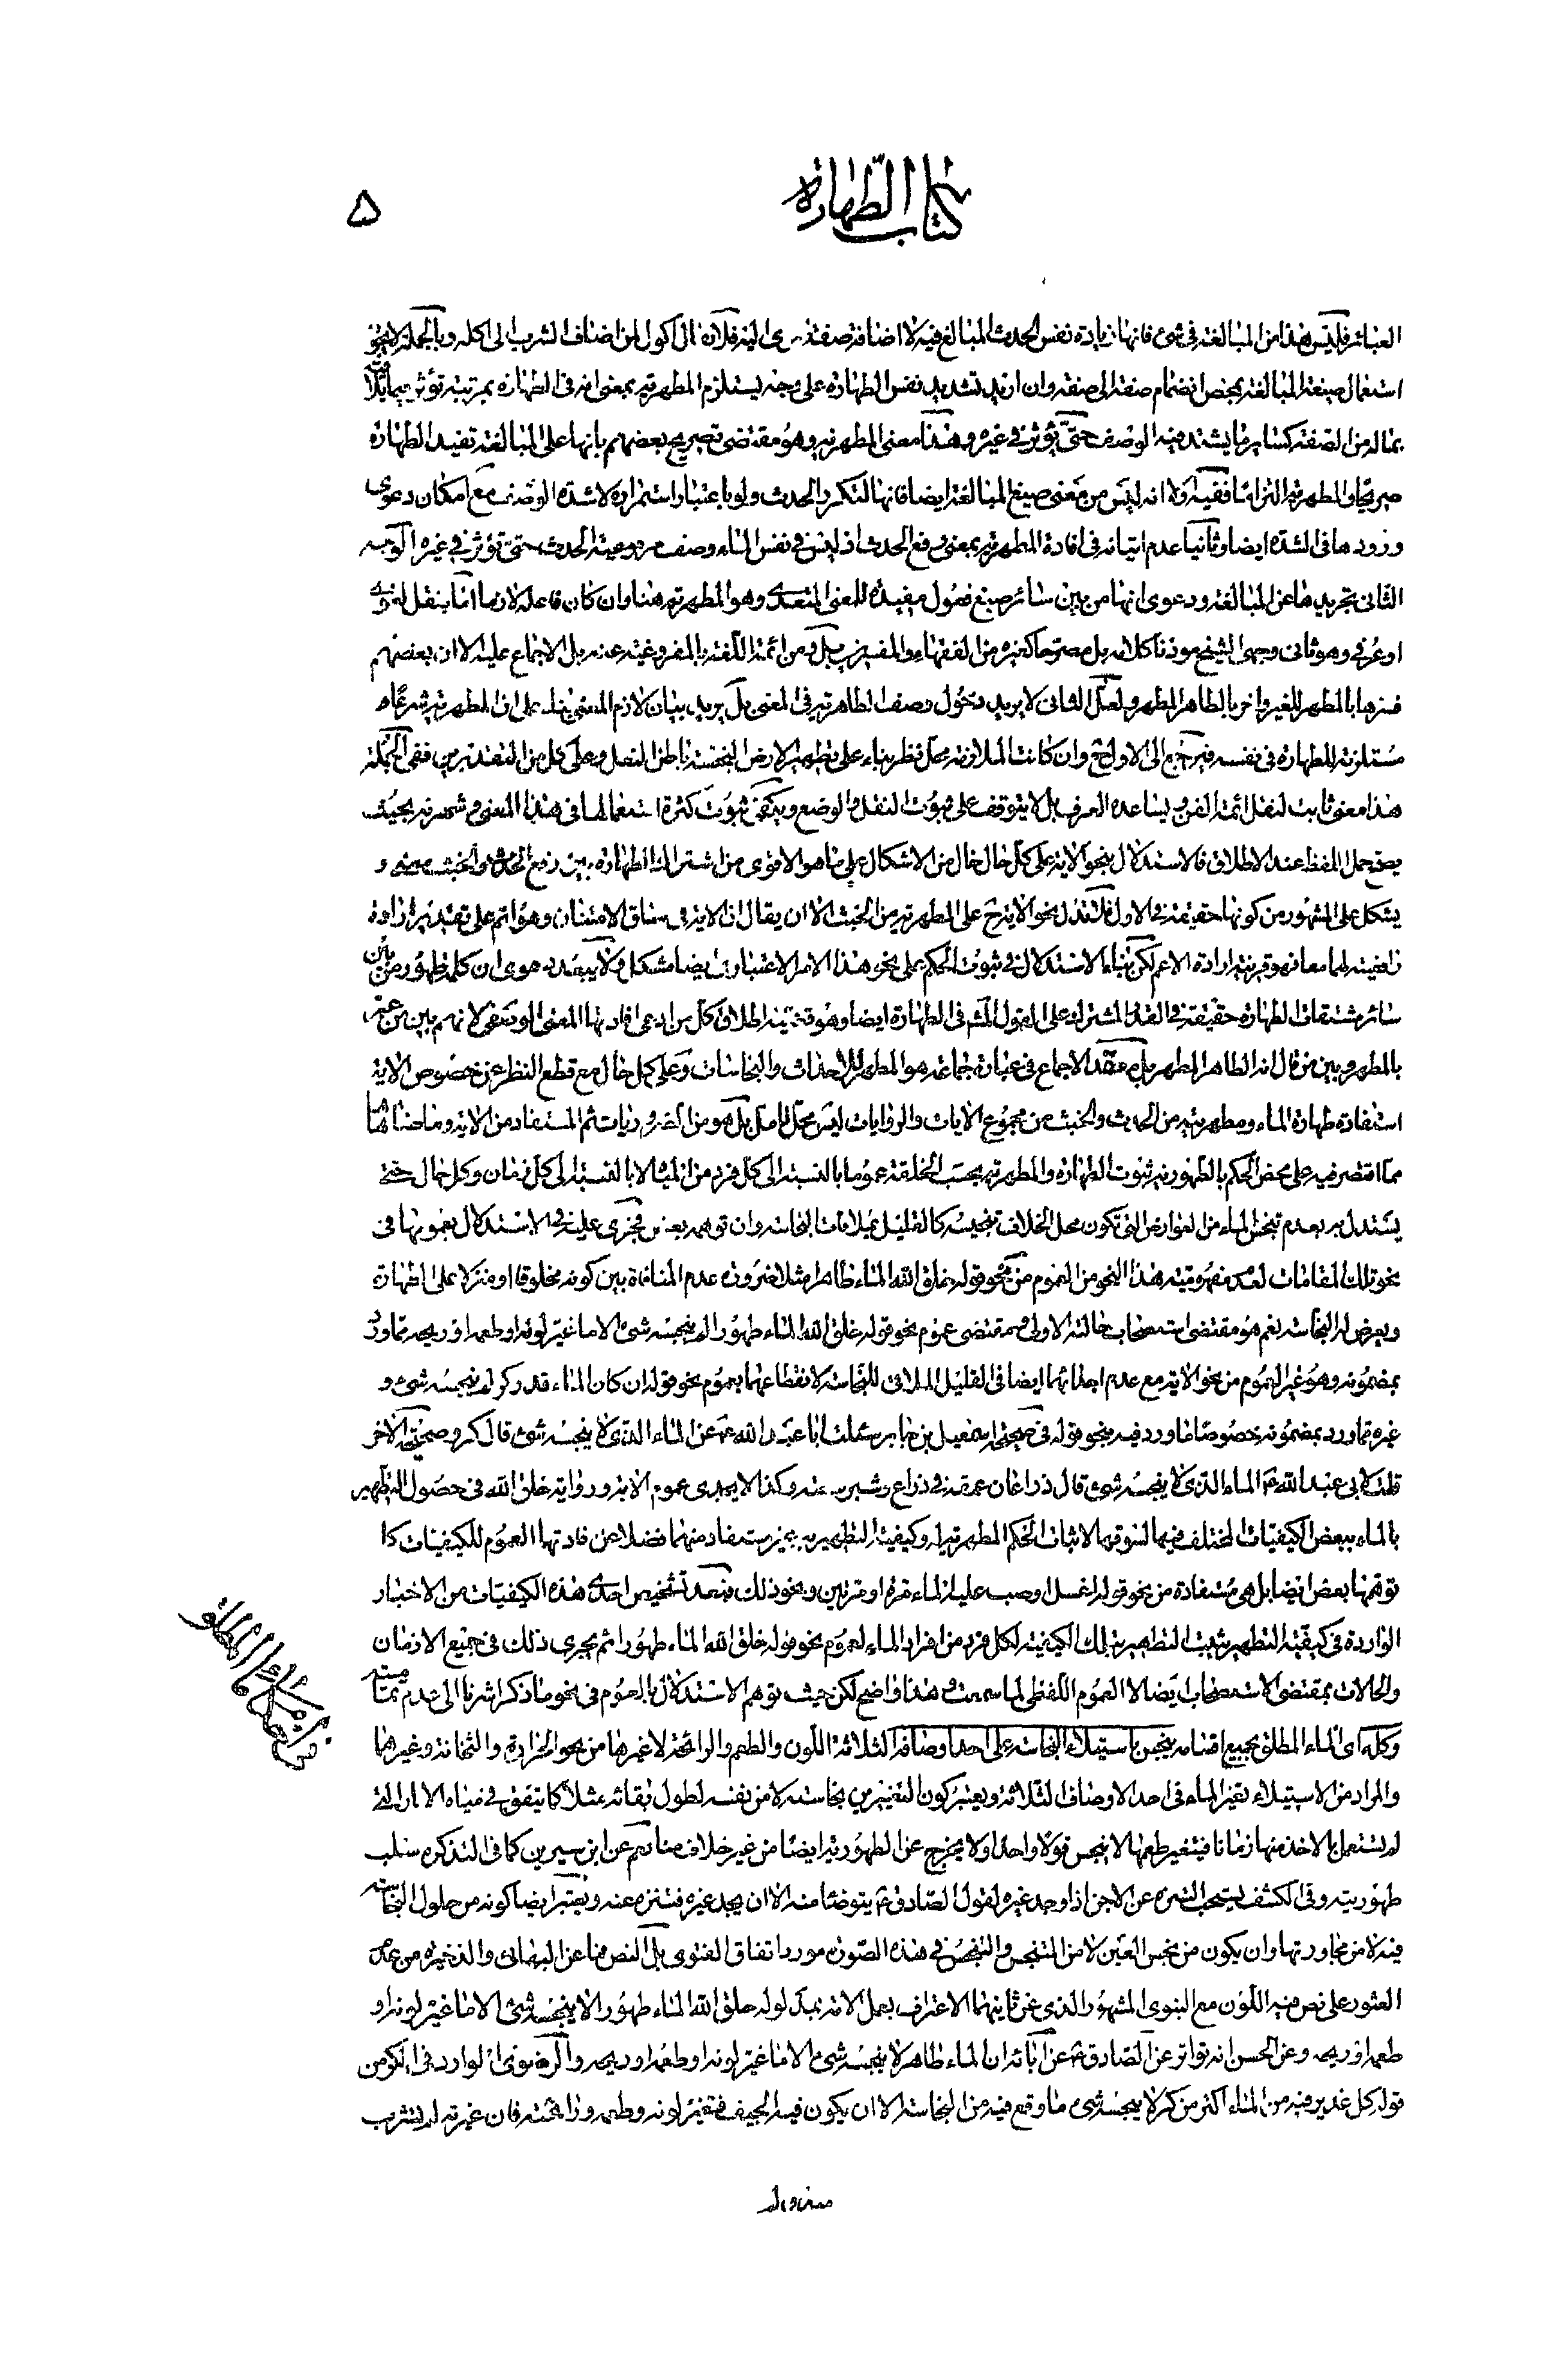 كتاب الطّهارة
۵
العبائر فليس هذا من المبالغة فى شئ فانها زيادة نفس الحدث المبالغ فيه لا اضافة صفة الى فلان اكول لمن اضاف الشرب الى اكله وبالجملة لا يجوز
استعمال صيغة المبالغة بمحض انضمام صفة الى صفة وان اريد تشديد نفس الطهارة على وجه يستلزم المطهرية بمعنى انه فى الطهارة بمرتبة تؤثر فيما يلاقيه
بماله من الصفة كساير ما يشتد فيه الوصف حتى يؤثر فى غيره وهذا معنى المطهرية وهو مقتضى تصريح بعضهم بانها على المبالغة تفيد الطهارة
صريحا والمطهرية التزاما ففيه اولا انه ليس من معنى صيغ المبالغة ايضا فانها لتكرر الحدث ولو باعتبار استمراره لا شدة الوصف مع امكان دعوى
ورودها فى الشدة ايضا وثانيا عدم اتيانه فى افادة المطهرية بمعنى رفع الحدث اذ ليس فى نفس الماء وصف مرفوعية الحدث حتى تؤثر فى غيره الوجه
الثانى تجريدها عن المبالغة ودعوى انها من بين سائر صيغ فعول مفيدة للمعنى المتعدى وهو المطهرية هنا وان كان فاعله لازما اما بنقل لغوى
او عرفى وهو ثانى وجهى الشيخ موذنا كلامه بل مصرحا كغيره من الفقهاء والمفسرين بل و من ائمة اللغة بالمفروغية عنه بل الاجماع عليه الا ان بعضهم
فسرها بالمطهر للغير واخر بالطاهر المطهر ولعل الثانى لا يريد دخول وصف الطاهرية فى المعنى بل يريد بيان لازم المعنى بناء على ان المطهرية شرعا
مستلزمة للطهارة فى نفسه فيرجع الى الاول ح وان كانت الملازمة محل نظر بناء على تطهير الارض النجسة باطن النعل وعلى كل من التقديرين ففى الجملة
هذا معنى ثابت لنقل ائمة الفن يساعده العرف بل لا يتوقف على ثبوت النقل والوضع ويكفى ثبوت كثرة استعمالها فى هذا المعنى وشهرته بحيث
يصح حمل اللفظ عند الاطلاق فالاستدلال بنحو الاية على كل حال خال من الاشكال على ما هو الاقوى من اشتراك الطهارة بين رفع الحدث والخبث معنى و
يشكل على المشهور من كونها حقيقة فى الاول فلا تدل نحو الاية ح على المطهرية من الخبث الا ان يقال ان الاية فى سياق الامتنان وهو اتم على تقدير ارادة
رافعيته لهما معا فهو قرينة ارادة الاعم لكن بناء الاستدلال فى ثبوت الحكم على نحو هذا الامر الاعتبارى ايضا مشكل ولا يبعد دعوى ان كلمة طهور من بين
سائر مشتقات الطهارة حقيقة فى القدر المشترك على القول المشهور فى الطهارة ايضا وهو قضية اطلاق كل من ادعى افادتها المعنى الوضعى لانهم بين من عبر
بالمطهر وبين من قال انه الطاهر المطهر بل معقد الاجماع فى عبارة جماعة هو المطهر للاحداث والنجاسات وعلى كل حال مع قطع النظر عن خصوص الاية
استفادة طهارة الماء ومطهريته من الحدث والخبث من مجموع الايات والروايات ليس محل تامل بل هو من الضروريات ثم المستفاد من الاية وما ضاهاها
مما اقتصر فيه على محض الحكم بالطهورية ثبوت الطهارة والمطهرية بحسب الخلقة عموما بالنسبة الى كل فرد من المياه لا بالنسبة الى كل زمان وكل حال حتى
يستدل به بعدم تنجس الماء من العوارض التى تكون محل الخلاف تنجيسه كالقليل بملاقات النجاسة وان توهمه بعض فجرى عليه فى الاستدلال بعمومها فى
نحو تلك المقامات لعدم مفهومية هذا النحو من العموم من نحو قوله خلق الله الماء طاهرا مثلا ضرورة عدم المنافاة بين كونه مخلوقا او منزلا على الطهارة
ويعرض له النجاسة نعم هو مقتضى استصحاب حالته الاولى ومقتضى عموم نحو قوله خلق الله الماء طهورا لم ينجسه شئ الا ما غير لونه او طعمه او ريحه مما ورد
بمضمونه وهو غير العموم من نحو الاية مع عدم اجدائهما ايضا فى القليل الملاقى للنجاسة لانقطاعهما بعموم نحو قوله ان كان الماء قدر كر لم ينجسه شئ و
غيره مما ورد بمضمونه خصوصا ما ورد فيه بنحو قوله فى صحيحة اسمعيل بن جابر سئلت ابا عبد الله ع عن الماء الذى لا ينجسه شئ قال كر وصحيحته الاخر
قلت لابى عبد الله ع الماء الذى لا ينجسه شئ قال ذراعان عمقه فى ذراع وشبر سعته وكذا لا يجدى عموم الاية ورواية خلق الله فى حصول التطهير
بالماء ببعض الكيفيات المختلف فيها لسوقهما لاثبات الحكم المطهرية له وكيفية التطهير به غير مستفاد منهما فضلا عن افادتهما العموم للكيفيات كما
توهمها بعض ايضا بل هى مستفادة من نحو قوله اغسل او صب عليه الماء مرة او مرتين ونحو ذلك فبعد تشخيص احدى هذه الكيفيات من الاخبار
الواردة فى كيفية التطهير يثبت التطهير بتلك الكيفية لكل فرد من افراد الماء لعموم نحو قوله خلق الله الماء طهورا ثم يجرى ذلك فى جميع الازمان
والحالات بمقتضى الاستصحاب ايضا لا العموم اللفظى لما سمعت وهذا واضح لكن حيث توهم الاستدلال بالعموم فى نحو ما ذكر اشرنا الى عدم تماميته
وكله اى الماء المطلق بجميع اقسامه ينجس باستيلاء النجاسة على احد اوصافه الثلاثة اللون والطعم والرائحة لا غيرها من نحو الحرارة والثخانة وغيرهما
والمراد من الاستيلاء تغير الماء فى احد الاوصاف الثلاثة ويعتبر كون التغيير من نجاسة لا من نفسه لطول بقائه مثلا كما يتفق فى مياه الابار التى
لم تستعمل بالاخذ منها زمانا فيتغير طعمها لا ينجس قولا واحدا ولا يخرج عن الطهورية ايضا من غير خلاف منا نعم عن ابن سيرين كما فى التذكرة سلب
طهوريته وفى الكشف يستحب التنزه عن الاجن اذا وجد غيره لقول الصادق ع يتوضأ منه الا ان يجد غيره فتنزه عنه ويعتبر ايضا كونه من حلول النجاسة
فيه لا من مجاورتها وان يكون من نجس العين لا من المتنجس والتنجس فى هذه الصورة مورد اتفاق الفتوى بل النص فما عن البهائى والذخيرة من عدم
العثور على نص فيه اللون مع النبوى المشهور الذى عن ثانيهما الاعتراف بعمل الامة بمدلوله خلق الله الماء طهورا لا ينجسه شئ الا ما غير لونه او
طعمه او ريحه وعن الحسن انه تواتر عن الصادق ع عن ابائه ان الماء طاهر لا ينجسه شئ الا ما غير لونه او طعمه او ريحه والرضوى الوارد فى الكر من
قوله كل غدير فيه من الماء اكثر من كر لا ينجسه شئ ما وقع فيه من النجاسة الا ان يكون فيه الجيف فتغير لونه وطعمه ورائحته فان غيرته لم تشرب